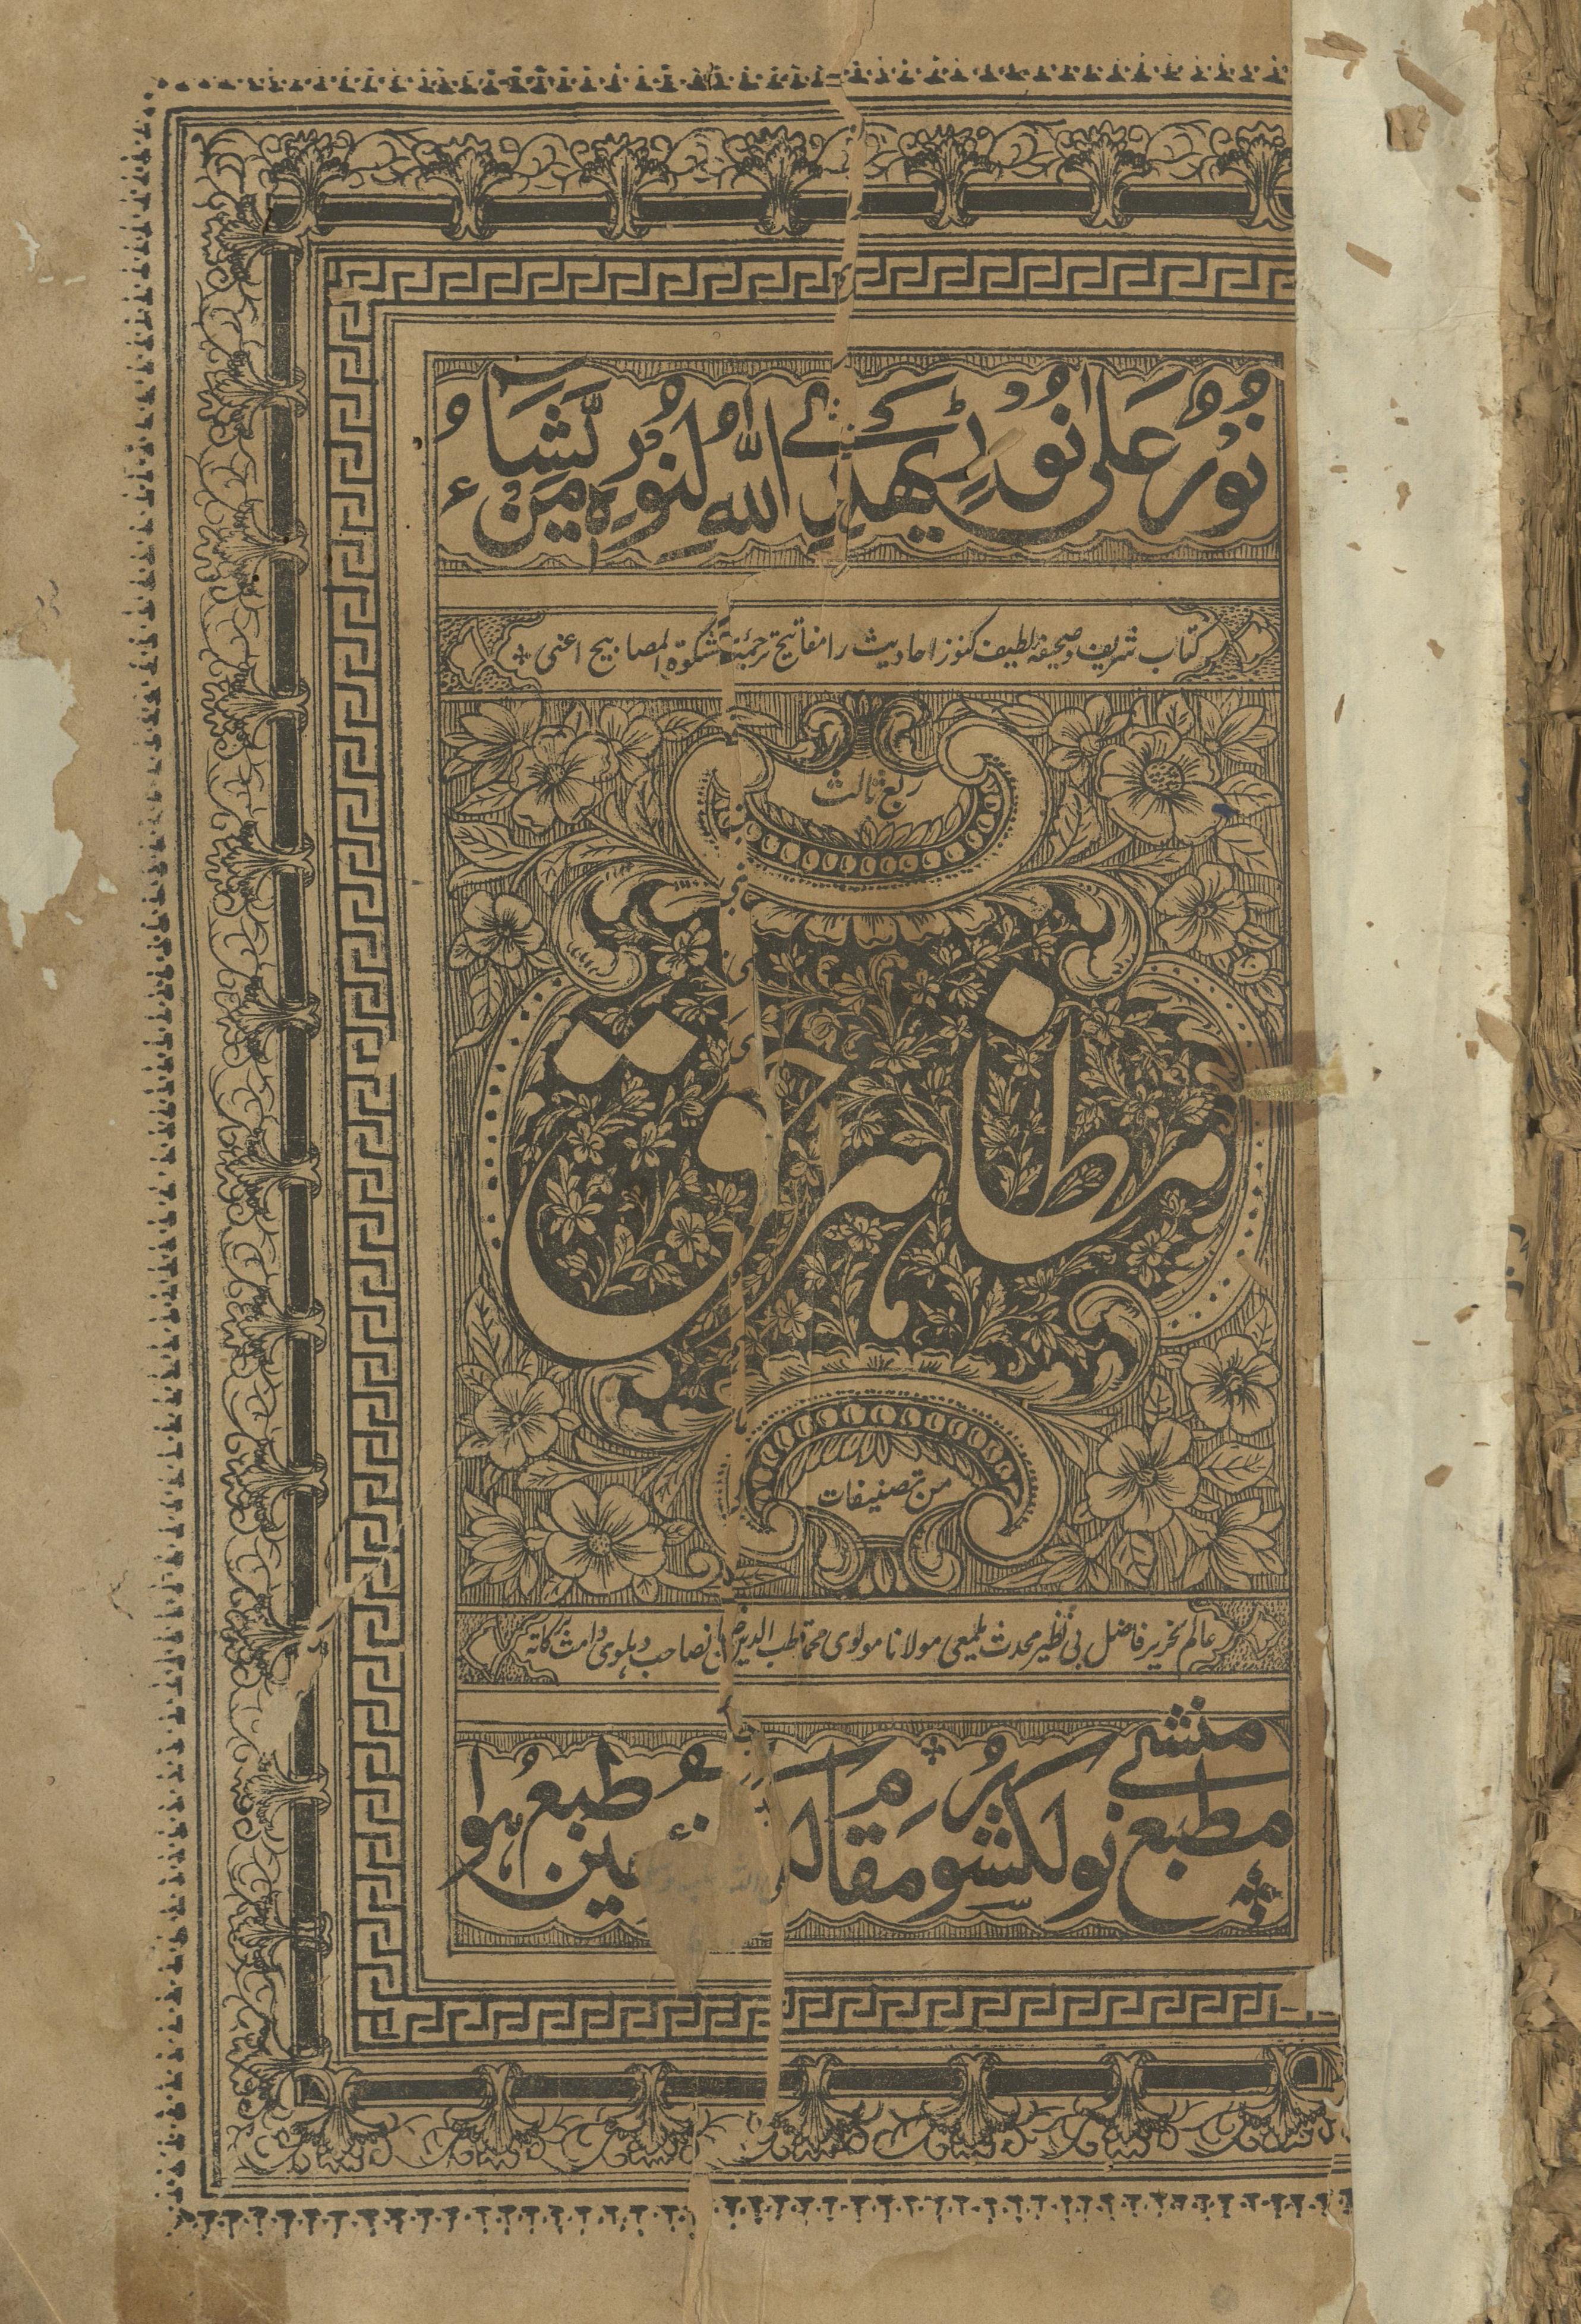 نُوْرٌ عَلٰى نُوْرٍ يَهْدِى اللّٰهُ لِنُوْرِهٖ مَنْ يَّشَاءُ
كتاب شريف وصحيفهٔ لطيف كنوز احاديث را مفاتيح ترجمهٔ مشكوة المصابيح اعنى
ربع ثالث
مظاهر حق
من تصنيفات
عالم نحرير فاضل بى نظير محدث يلمعى مولانا مولوى محمد قطب الدين نصاحب دہلوى دامت بركاته
مطبع منشى نولكشور مقام مين طبع ہوا